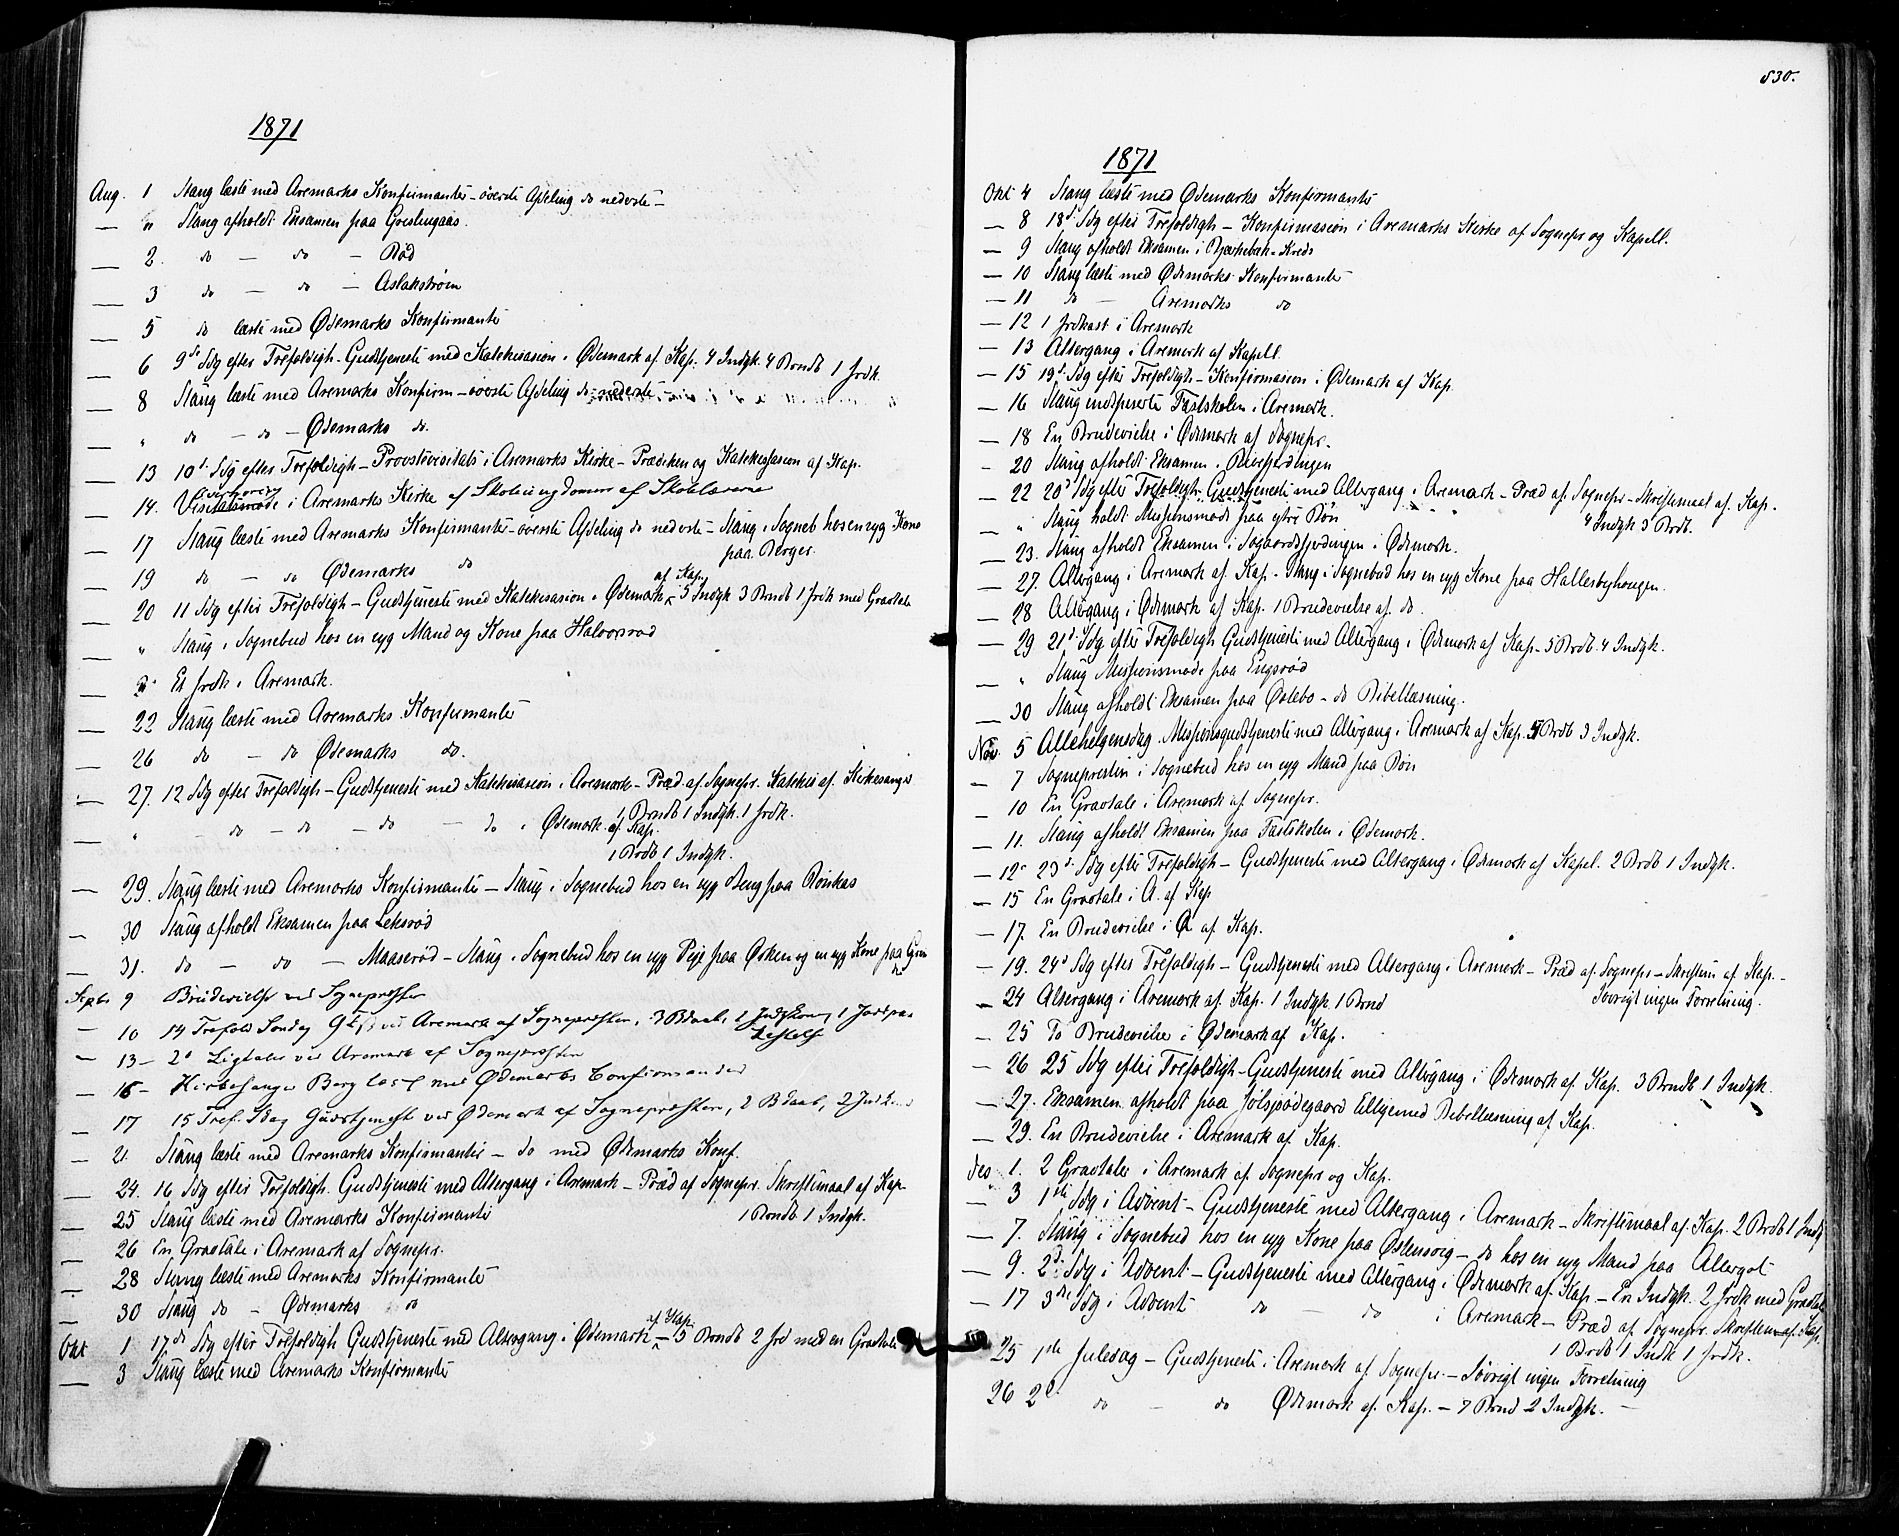 1871
Aug. 1 Stang læste med Aremarks Konfirmanter - øverste Afdeling do nederste -
— " Stang afholdt Eksamen paa
— 2. do — do — Rød
— 3 do — do — Aslakstrøm
— 5 do læste med Ødemarks Konfirmanter
— 6 9de Sdg efter Trefoldigh - Gudstjeneste med Katekisasion i Ødemark af Kap. 4 Indgk. 4 Brndb 1 Jrdk.
— 8 Stang læste med Aremarks Konfirm - øverste Afdeling do nederste -
— " do — do — Ødemarks do.
— 13 10d. Sdg efter Trefoldigh - Provstevisitats i Aremarks Kirke - Prædiken og Katekisasion af Kap.
— 14. i Aremarks Kirke af Skoleungdommen af Skolelærerne
— 17 Stang læste med Aremarks Konfirmanter - øverste Afdeling do nederste - Stang i Sogneb. hos en syg Kone
paa Berger.
— 19 do — do Ødemarks do
af Kap.
— 20 11 Sdg efter Trefoldigh - Gudstjeneste med Katekisasion i Ødemark 5 Indgk 3 Brndb 1 Jrdk med Gravtale
— " Stang i Sognebud hos en syg Mand og Kone paa Halvorsrød
— Et Jrdk i Aremark.
— 22 Stang læste med Aremarks Konfirmanter
— 26 do — do Ødemarks do.
— 27. 12 Sdg efter Trefoldigh - Gudstjeneste med Katekisasion i Aremark - Præd. af Sognepr. Katekis af Kirkesanger
1 Brndb 1 Indgk. 1 Jrdk.
— " — do — do — do — do i Ødemark af Kap.
1 Brdb 1 Indgk.
— 29. Stang læste med Aremarks Konfirmanter - Stang i Sognebud hos en syg paa
— 30 Stang afholdt Eksamen paa Leksrød
— 31. do — do — Maaserød - Stang i Sognebud hos en syg Pige paa Ørken og en syg Kone paa
Septr 9 Brudevielse ved Sognepræsten
— 10 14 Trefold Søndag ved Aremark af Sognepræsten, 3 Bdaab, 1
— 13 — 2 Ligtaler ved Aremark af Sognepræsten
— 16 — Kirkesanger Berg læst med Ødemarks Confirmander
— 17 15 Tref. Sdag Gudstjeneste ved Ødemark af Sognepræsten, 2 Bdaab, 2
— 21. Stang læste med Aremarks Konfirmanter - do med Ødemarks Konf.
— 24. 16 Sdg efter Trefoldigh. Gudstjeneste med Altergang i Aremark - Præd af Sognepr. Skriftemaal af Kap
1 Brndb 1 Indgk.
— 25 Stang læste med Aremarks Konfirmanter
— 26 En Gravtale i Aremark af Sognepr.
— 28 Stang læste med Aremarks Konfirmanter
— 30 Stang do - Ødemarks do
af Kap.
Okt 1 17de Sdg efter Trefoldigh Gudstjeneste med Altergang i Ødemark - 5 Brndb 2 Jrd med en Gravtale
— 3 Stang læste med Aremarks Konfirmanter
830.
1871
Okt 4 Stang læste med Ødemarks Konfirmanter
— 8 18d. Sdg efter Trefoldigh - Konfirmasion i Aremarks Kirke af Sognepr og Kapell.
— 9 Stang afholdt Eksamen i Bjærkebæk-Kreds
— 10 Stang læste med Ødemarks Konfirmanter
— 11 do — Aremarks do
— 12 1 Jrdkast i Aremark
— 13 Altergang i Aremark af Kapell.
— 15 19d. Sdg efter Trefoldigh - Konfirmasion i Ødemark af Kap.
— 16 Stang indspiserte Fastskolen i Aremark.
— 18 En Brudevielse i Ødemark af Sognepr.
— 20 Stang afholdt Eksamen i
— 22 20d Sdg efter Trefoldigh - Gudstjeneste med Altergang i Aremark - Præd af Sognepr - Skriftemaal af Kap.
4 Indgk 3 Brdb.
— " Stang holdt Missionsmøde paa ytre Bøn
— 23. Stang afholdt Eksamen i i Ødemark.
— 27. Altergang i Aremark af Kap. - Stang i Sognebud hos en syg Kone paa Hallesbyhaugen.
— 28 Altergang i Ødemark af Kap. 1 Brudevielse af do.
— 29 21d. Sdg efter Trefoldigh Gudstjeneste med Altergang i Ødemark af Kap - 5 Brdb. 4 Indgk.
— " Stang Missionsmøde paa Engsrød
— 30 Stang afholdt Eksamen paa - do Bibellæsning.
Nov 5 Allehelgensdag. Missionsgudstjeneste med Altergang i Aremark af Kap. Brdb 3 Indgk.
— 7 Sognepresten i Sognebud hos en syg Mand paa Bøn
— 10 En Gravtale i Aremark af Sognepr.
— 11. Stang afholdt Eksamen paa Fastskolen i Ødemark.
— 12 23d. Sdg efter Trefoldigh - Gudstjeneste med Altergang i Ødemark af Kapel. 2 Brdb 1 Indgk.
— 15 En Gravtale i A. af Kap
— 17. En Brudevielse i Ø af Kap.
— 19. 24d Sdg efter Trefoldigh - Gudstjeneste med Altergang i Aremark - Præd af Sognepr - Skriftem af Kap. -
Iøvrigt ingen Forretning.
— 24 Altergang i Aremark af Kap. 1 Indgk 1 Brnd
— 25 To Brudevielse i Ødemark af Kap.
— 26 25 Sdg efter Trefoldigh - Gudstjeneste med Altergang i Ødemark af Kap. 3 Brndb 1 Indgk.
— 27. Eksamen afholdt paa Bibellæsning af Kap.
— 29. En Brudevielse i Aremark af Kap.
Des 1. 2 Gravtaler i Aremark af Sognepr og Kap.
— 3 1ste Sdg i Advent - Gudstjeneste med Altergang i Aremark - Skriftemaal af Kap. 2 Brdb 1 Indg
— 7. Stang i Sognebud hos en syg Kone paa Østensvig - do hos en syg Mand paa
— 9. 2d. Sdg i Advent - Gudstjeneste med Altergang i Ødemark af Kap - En Indgk. 2 Jrdk med Gravtale
— 17 3die Sdg i Advent do — do i Aremark - Præd af Sognepr. Skriftem af Kap.
1 Brdb 1 Indk 1 Jrdk.
25 1ste Juledag - Gudstjeneste i Aremark af Sognepr - Iøvrigt ingen Forretning
26 2d do — do Ødemark af Kap. - 7 Brnd 2 Indgk. -